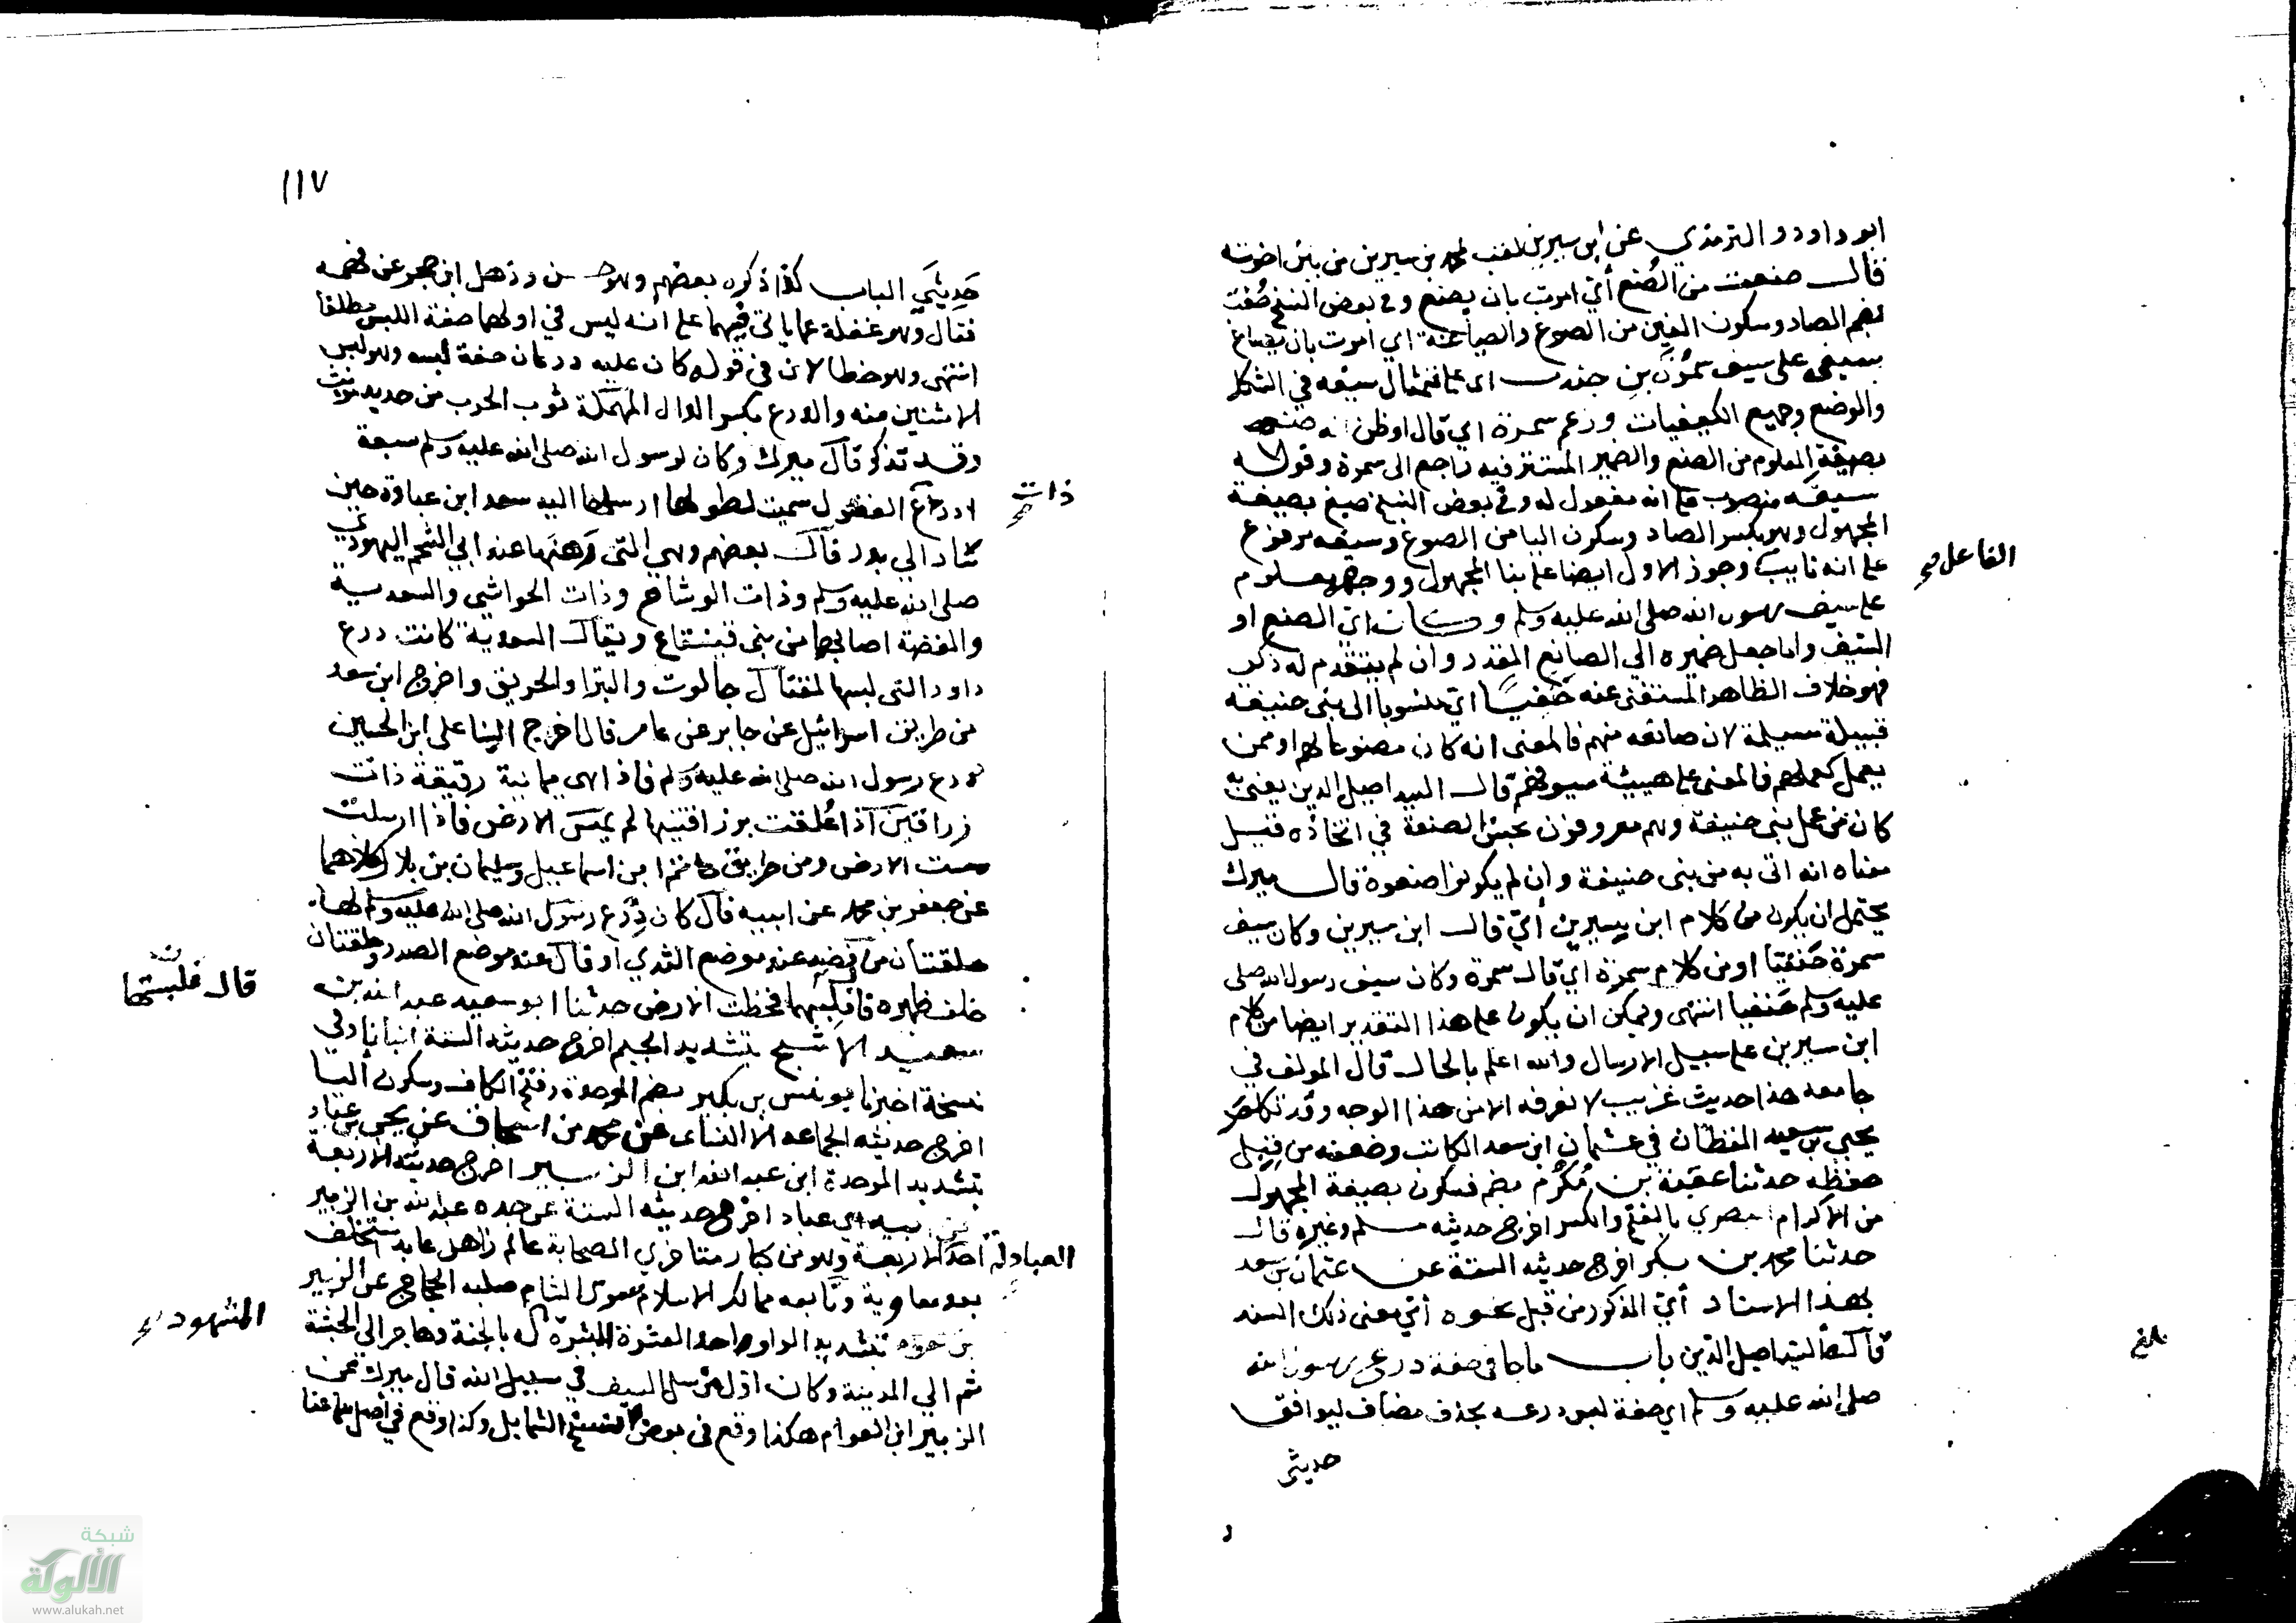 ابو داود والترمذي عن ابن سيرين لقب لمحمد بن سيرين من بين اخوته
قال صنعت من الصُنع أي امرت بان يصنع وفي بعض النسخ صُغت
بضم الصاد وسكون الغين من الصوغ والصياغة اي امرت بان يصاغ
سيفي على سيف سمُرَة بن جندب اى على تمثال سيفه في الشكل
والوضع وجميع الكيفيات وزعم سمرة اي قال او ظن انه صنع
بصيغة المعلوم من الصنع والضمير المستتر فيه راجع الى سمرة وقوله
سيفَه منصوب على انه مفعول له وفي بعض النسخ صيغ بصيغة
المجهول وهو بكسر الصاد وسكون اليا من الصوغ وسيفه مرفوع
على انه نايب وجوز الاول ايضا على بنا المجهول ووجهه معلوم
الفاعل صح
على سيف رسول الله صلى الله عليه وسلم وكان اي الصنع او
السيف واما جعل ضميره الي الصانع المقدر وان لم يتقدم له ذكر
فهو خلاف الظاهر المستغنى عنه حنفيًا اي منسوبا الى بنى حنيفة
قبيلة مسيلمة لان صانعه منهم فالمعنى انه كان مصنوعا لهم او ممن
يعمل كعملهم فالمعنى على هيئة سيوفهم قال السيد اصيل الدين يعنى به
كان من عمل بنى حنيفة وهم معروفون بحسن الصنعة في اتخاذه قيل
معناه انه اتى به من بنى حنيفة وان لم يكونوا صنعوه قال ميرك
يحتمل ان يكون من كلام ابن سيرين أي قال ابن سيرين وكان سيف
سمرة حَنفيا او من كلام سمرة اي قال سمرة وكان سيف رسول الله صلى
عليه وسلم حنفيا انتهى ويمكن ان يكون على هذا التقدير ايضا من كلام
ابن سيرين على سبيل الارسال والله اعلم بالحال قال المولف في
جامعه هذا حديث غريب لا نعرفه الا من هذا الوجه وقد تكلم
يحيى بن سعيد القطان في عثمان ابن سعد الكاتب وضعفه من قِبَل
حفظه حدثنا عقبة بن مُكْرَم بضم فسكون بصيغة المجهول
من الاكرام البصري بالفتح والكسر اخرج حديثه مسلم وغيره قال
حدثنا محمد بن بكر اخرج حديثه الستة عن عثمان بن سعد
بهذا الاسناد أي المذكور من قبل نحوه أي معنى ذلك السند
بلغ
قاله السيد اصيل الدين باب ما جا في صفة درع رسول الله
صلى الله عليه وسلم اي صفة لبس درعه بحذف مضاف ليوافق
حديثى
١١٧
حَديثَي الباب كذا ذكره بعضهم وهو حسن وذهل ابن حجر عن فهمه
فقال وهو غفلة عما ياتى فيهما على انه ليس في اولهما صفة اللبس مطلقا
انتهى وهو خطا لان في قوله كان عليه درعان صفة لبسه وهو لبس
الاثنين منه والدرع بكسر الدال المهملة ثوب الحرب من حديد مونث
وقد تذكر قال ميرك وكان لرسول الله صلى الله عليه وسلم سبعة
ادرع الفضول سميت لطولها ارسلها اليه سعد ابن عبادة حين
ذات صح
سار الي بدر قال بعضهم وهي التى رَهَنَها عند ابي الشحم اليهودي
صلى الله عليه وسلم وذات الوشاح وذات الحواشي والسعدية
والفضة اصابهما من بنى قينقاع ويقال السعدية كانت درع
داود التى لبسها لقتال جالوت والبترا والخريق واخرج ابن سعد
من طريق اسرائيل عن جابر عن عامر قال اخرج الينا على ابن الحسين
درع رسول الله صلى الله عليه وسلم فاذا هى يمانية رقيقة ذات
زرافتين اذا عُلقت بزرافتيها لم يمس الارض فاذا ارسلت
مست الارض ومن طريق حاتم ابن اسماعيل وسليمان بن بلال كلاهما
عن جعفر بن محمد عن ابيه قال كان دِرْع رسول الله صلى الله عليه وسلم لها
حلقتان من فضة عند موضع الثدي او قال عند موضع الصدر وحلقتان
قال فلبستها
خلف ظهره فخطت الارض حدثنا ابو سعيد عبد الله بن
سعيد الاشج بتشديد الجيم اخرج حديثه الستة انبانا وفي
نسخة اخبرنا يونس بن بكير بضم الموحدة وفتح الكاف وسكون اليا
اخرج حديثه الجماعه الا النساى عن محمد بن اسحاق عن يحيى بن عباد
بتشديد الموحدة ابن عبد الله ابن الزبير اخرج حديثه الاربعة
عن ابيه اي عباد اخرج حديثه الستة عن جده عبد الله بن الزبير
احد الاربعة وهو من كبار متاخري الصحابة عالم زاهد عابد استخلف
العبادلة
بعد معاوية وتابعه ممالك الاسلام سوى الشام صلبه الحجاج عن الزبير
بن العوام بتشديد الواو واحد العشرة المبشرة له بالجنة وهاجر الي الحبشة
المشهود صح
ثم الي المدينة وكان اول من سل السيف في سبيل الله قال ميرك عن
الزبير ابن العوام هكذا وقع في بعض نسخ الشمايل وكذا وقع في اصل سماعنا
شبكة
الألوكة
www.alukah.net